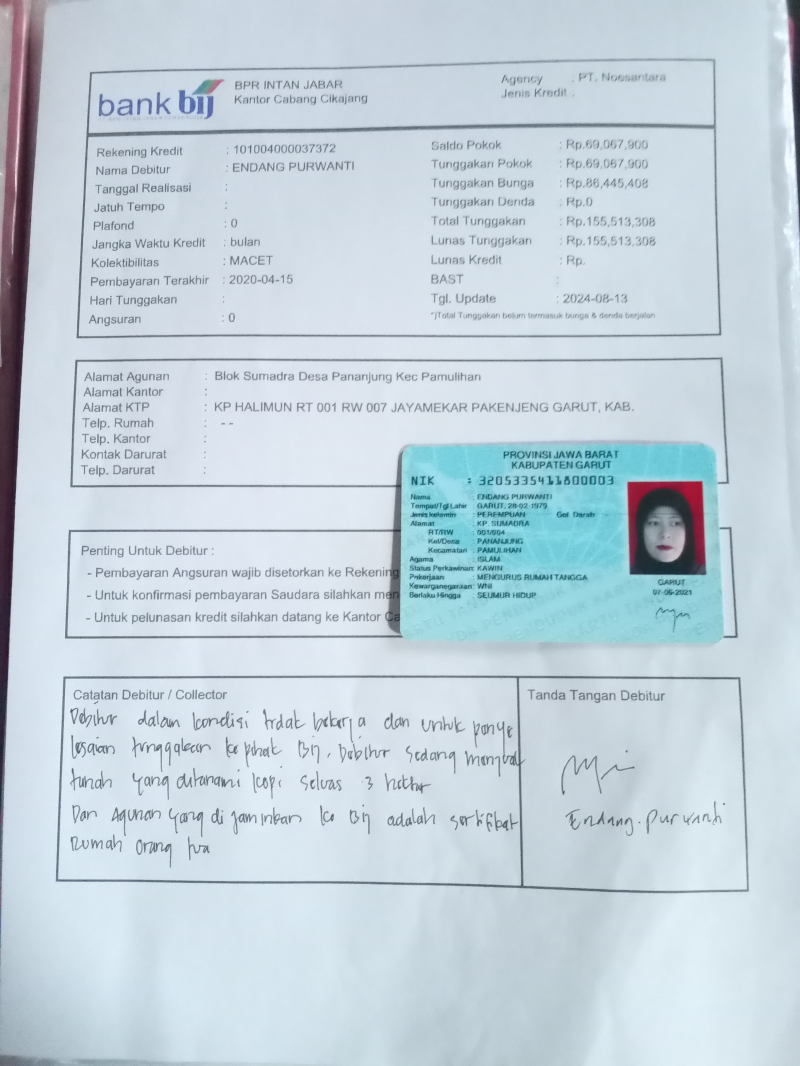 bank bij
BPR INTAN JABAR
Kantor Cabang Cikajang
Agency : PT. Noesantara
Jenis Kredit :
Rekening Kredit : 101004000037372
Nama Debitur : ENDANG PURWANTI
Tanggal Realisasi :
Jatuh Tempo :
Plafond : 0
Jangka Waktu Kredit : bulan
Kolektibilitas : MACET
Pembayaran Terakhir : 2020-04-15
Hari Tunggakan :
Angsuran : 0
Saldo Pokok : Rp.69,067,900
Tunggakan Pokok : Rp.69,067,900
Tunggakan Bunga : Rp.86,445,408
Tunggakan Denda : Rp.0
Total Tunggakan : Rp.155,513,308
Lunas Tunggakan : Rp.155,513,308
Lunas Kredit : Rp.
BAST :
Tgl. Update : 2024-08-13
*)Total Tunggakan belum termasuk bunga & denda berjalan
Alamat Agunan : Blok Sumadra Desa Pananjung Kec Pamulihan
Alamat Kantor :
Alamat KTP : KP HALIMUN RT 001 RW 007 JAYAMEKAR PAKENJENG GARUT, KAB.
Telp. Rumah : --
Telp. Kantor :
Kontak Darurat :
Telp. Darurat :
PROVINSI JAWA BARAT
KABUPATEN GARUT
NIK : 3205335411800003
Nama : ENDANG PURWANTI
Tempat/Tgl Lahir : GARUT, 28-02-1979
Jenis kelamin : PEREMPUAN Gol. Darah : -
Alamat : KP. SUMADRA
RT/RW : 001/004
Kel/Desa : PANANJUNG
Kecamatan : PAMULIHAN
Agama : ISLAM
Status Perkawinan: KAWIN
Pekerjaan : MENGURUS RUMAH TANGGA
Kewarganegaraan: WNI
Berlaku Hingga : SEUMUR HIDUP
GARUT
07-06-2021
Penting Untuk Debitur :
- Pembayaran Angsuran wajib disetorkan ke Rekening
- Untuk konfirmasi pembayaran Saudara silahkan men
- Untuk pelunasan kredit silahkan datang ke Kantor Ca
Catatan Debitur / Collector
Debitur dalam kondisi tidak bekerja dan untuk penye
lesaian tunggakan ke pihat Bij, Debitur sedang menjual
tanah yang ditanami kopi seluas 3 hektar
Dan Agunan yang di jaminkan ke Bij adalah sertifikat
Rumah orang tua
Tanda Tangan Debitur
Endang.purwanti